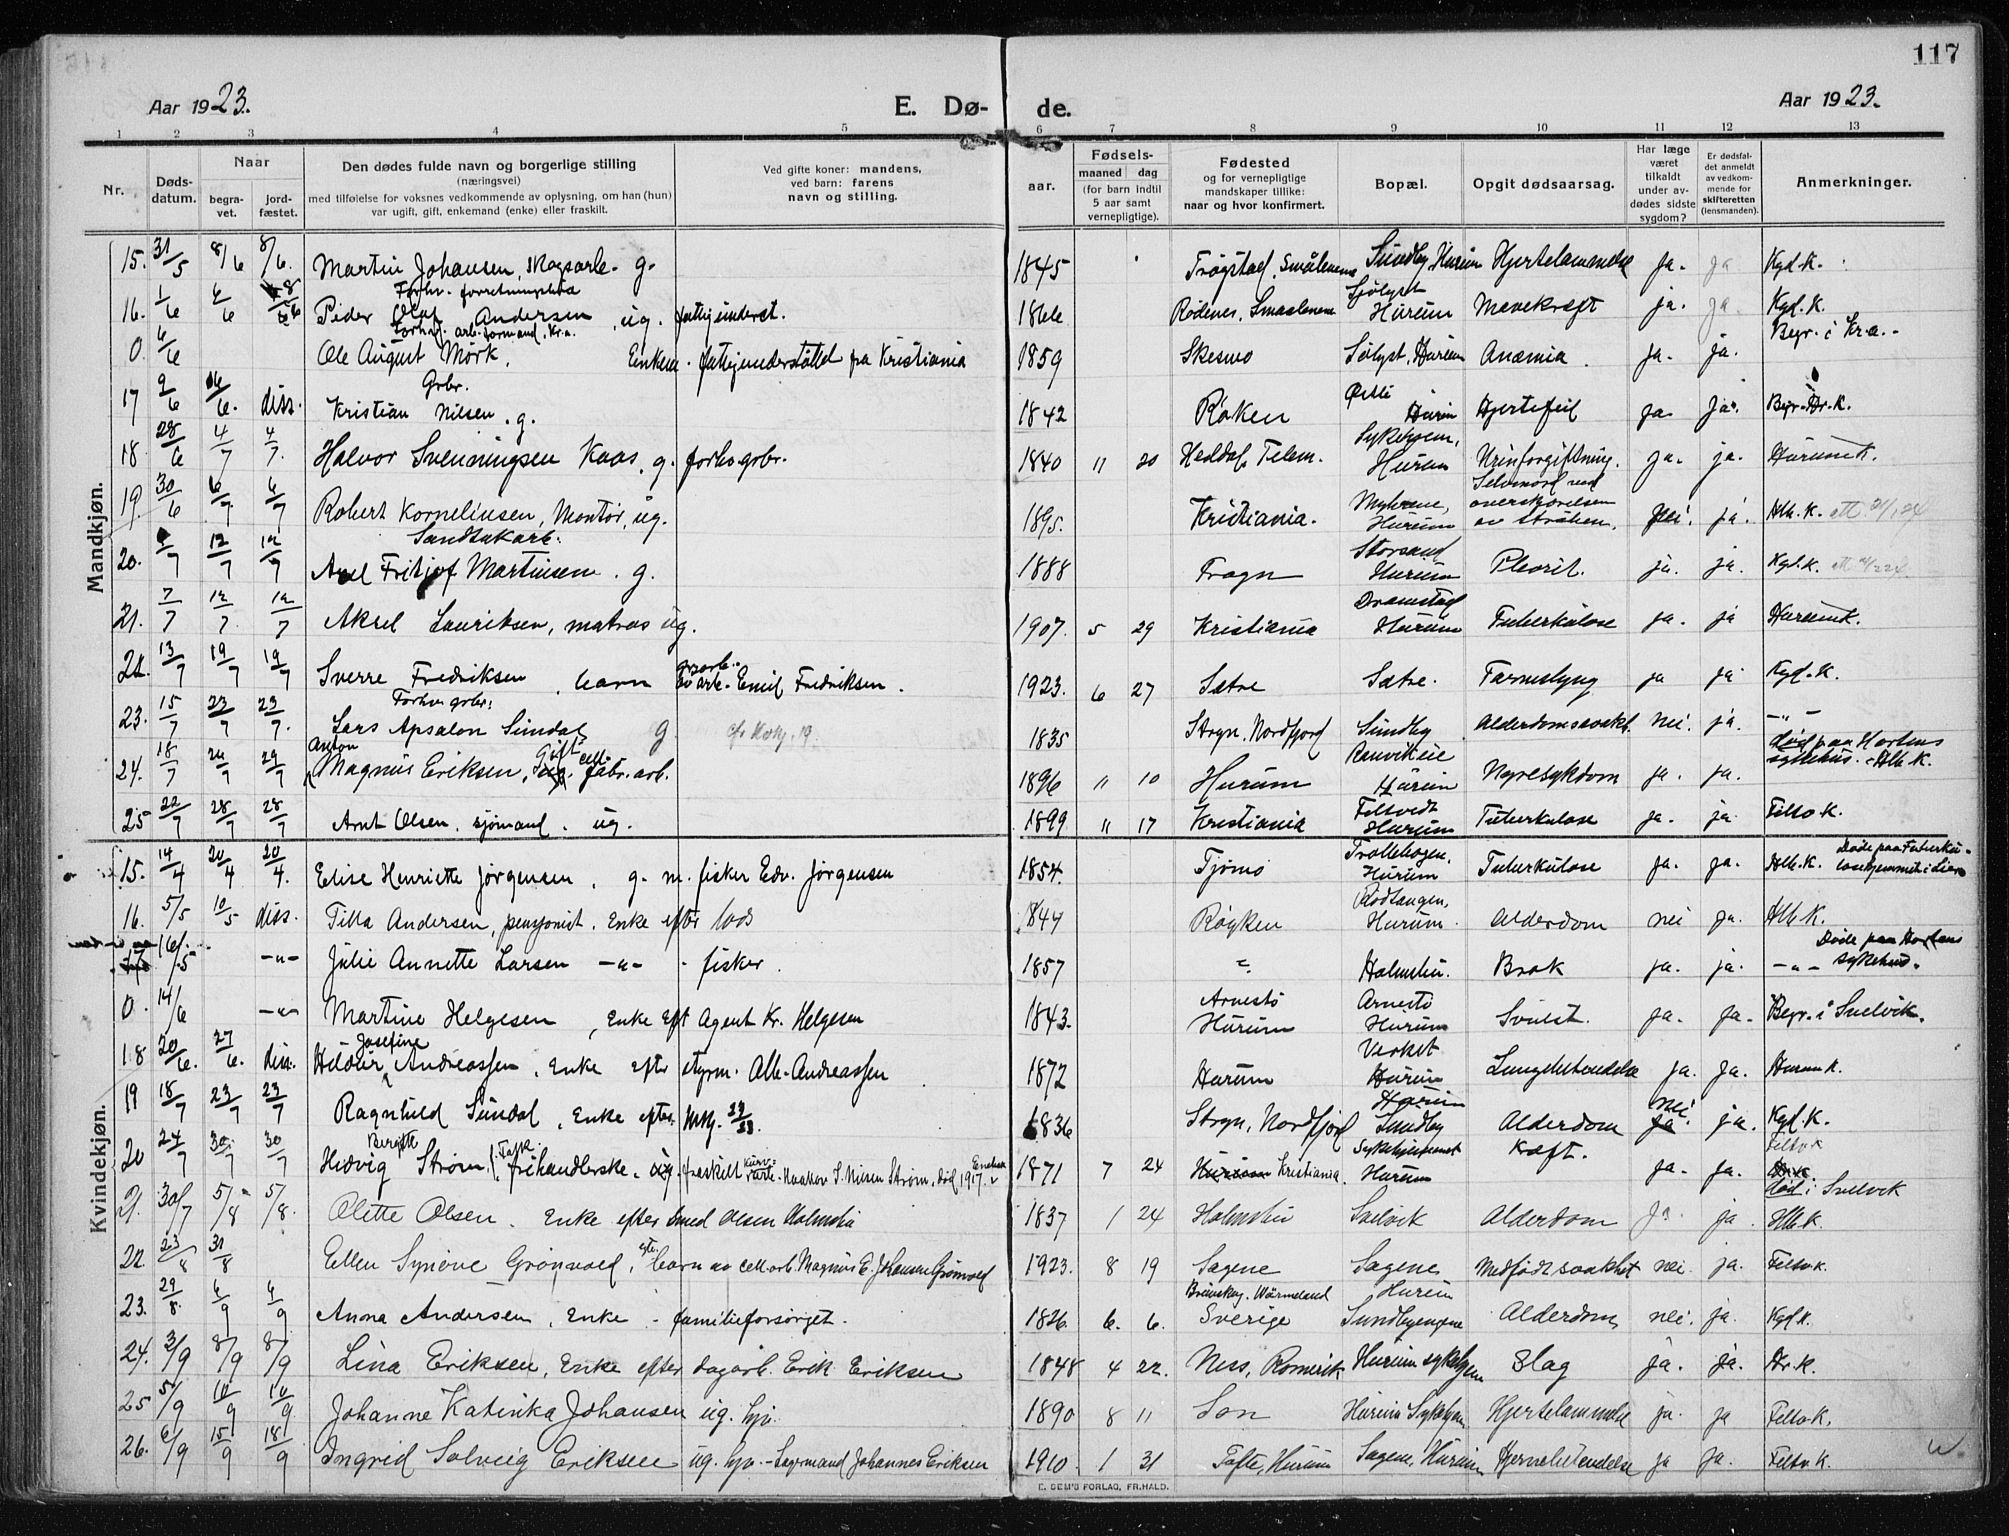 117
Aar 1923.
E. Dø-
de.
Aar 1923.
1 2 3 4 5 6 7 8 9 10 11 12 13
Nr.
Døds-
datum.
Naar
begra-
vet.
jord-
fæstet.
Den dødes fulde navn og borgerlige stilling
(næringsvei)
med tilføielse for voksnes vedkommende av oplysning, om han (hun)
var ugift, gift, enkemand (enke) eller fraskilt.
Ved gifte koner: mandens,
ved barn: farens
navn og stilling.
aar.
Fødsels-
maaned dag
(for barn indtil
5 aar samt
vernepligtige).
Fødested
og for vernepligtige
mandskaper tillike:
naar og hvor konfirmert.
Bopæl.
Opgit dødsaarsag.
Har læge
været
tilkaldt
under av-
dødes sidste
sygdom?
Er dødsfal-
det anmeldt
av vedkom-
mende for
skifteretten
(lensmanden).
Anmerkninger.
Mandkjøn.
15. 31/5 8/6 8/6. Martin Johansen, skogsarb. g. 1845 Trøgstad, Smålenene Sundby, Hurum Hjertelammelse ja. ja Kgd.K.
16. 1/6 6/6 8/6 Peder Olaf Andersen, ug. fattigunderst. 1866 Rødenes, Smaalenene Sjølyst Hurum Mavekræft ja. ja. Kgd.K.
Forhv. arb. formand, Kr.a.
0. 6/6 Ole August Mørk, Enkem. fattigunderstøttet paa Kristiania 1859 Skesmo Sølyst, Hurum Anæmia. ja. ja. Begr. i Kr.a.
Grbr.
17 9/6 16/6. diss. Kristian Nilsen. g. 1842 Røken Hurum Hjertefeil ja. ja.
18 28/6 4/7 4/7. Halvor Svenningsen Kaas, g. forhv. grbr. 1840 11 20 Heddal, Telem. Sykehjem, Hurum Urinforgiftning. ja. ja. Hurum K.
19. 30/6 6/7 6/7 Robert Korneliusen, Montør, ug. 1895. Kristiania. Myhrene, Hurum Selvmord ved overskjærelsen av struben. nei. ja. Hlb.K.
20. 7 12/7 12/7 Axel Fritjof Martinsen. g. 1888 Frogn Storsand Hurum Pleorit. ja. ja. Kgd.K.
21. 7/7 12/7 12/7 Aksel Lauritsen, matros ug. 1907. 5 29 Kristiania Dramstad Hurum Tuberkulose ja. ja Hurum K.
22. 13/7 19/7 19/7 Sverre Fredriksen, barn Emil Fredriksen. 1923. 6 27 Sætre Sætre. Tarmslyng ja ja Kgd.K.
Forhv. grbr.
23. 15/7 23/7 23/7. Lars Apsalon Sundal g. 1835 Stryn, Nordfjord Sundby Alderdomssvakh. nei. ja. -"-
24. 18/7 24/7 24/7 Anton Magnus Eriksen, Gift cell. fabr. arb. 1896 11 10 Hurum Ranvikeie Hurum Nyresykdom ja. ja. død paa Hortens sykehus. Hlb K.
25 22/7 28/7 28/7 Arnt Olsen, sjømand. ug. 1899 11 17 Kristiania Filtvedt Hurum Tuberkulose ja. ja. Filtv K.
Kvindekjøn.
15. 14/4 20/4 20/4. Elise Henriette Jørgensen, g. m. fisker Edv. Jørgensen 1854. Tjømø Trollebogen, Hurum Tuberkulose ja. ja. Hlb.K. Døde paa Tuberkulosehjemmet i Lier
16. 5/5 10/5 diss. Tilla Andersen, pensjonist. Enke efter lods 1844 Røyken Rødtangen, Hurum. Alderdom nei ja. Hlb K.
17 16/5 -"- Julie Annette Larsen -"- fisker. 1857 " Holmsbu. Brok ja. ja. -"- Døde paa Hortens sykehus.
0 14/6 -"- Martine Helgesen, Enke eft Agent Kr. Helgesen 1843. Arnestø Hurum Arnestø Hurum Svulst. ja. ja. Begr. i Svelvik.
18 20/6. 27/6. diss. Hildur Josefine Andreassen, Enke efter styrm. Alb. Andreassen 1872 Hurum Verket Hurum Lungebetendelse ja. ja. Hurum K.
19 18/7 23/7 23/7 Ragnhild Sundal, Enke efter Mkj. 23/23. 1836 Stryn, Nordfjord Hurum Sundby Alderdom nei ja. Kgd.K.
20 24/7 30/7 30/7 Hedvig Birgitte Strøm, frihandlerske. ug. fraskilt Haakon I. Nilsen Strøm, død 1917. 1871 7 24 Hurum Kristiania. Sykehjemmet Hurum Kræft. ja. ja. Filtv K
21. 30/7 5/8 5/8. Olette Olsen. Enke efter Smed Olsen Holmsbu 1837 1 24 Holmsbu Svelvik Alderdom ja. ja død i Svelvik Hlb.K.
22 23/8 31/8 Ellen Synøve Grønvold, barn av cell.arb. Magnus E. Johansen Grønvold 1923. 8 19 Sagene Sagene Hurum Medfødt svakhet nei. ja. Filtv.K.
23. 29/8. 4/9 4/9 Anna Andersen, Enke - familieforsørget. 1836 6. 6. Wärmeland Sverige Sundbyengene Alderdom nei. ja. Kgd K.
24. 3/9 8/9 8/9 Lina Eriksen, Enke efter dagarb. Erik Eriksen 1848 4 22. Ness, Romerik Hurum sykehjem Slag ja. ja. Hr.K.
25 5/9 10/9 10/9 Johanne Katinka Johansen ug. hjv. 1890 8 11 Son Hurum Sykehjem Hjertelammelse ja. ja Filtv K.
26. 9/9 15/9 18/9 Ingrid Solveig Eriksen ug. hjv. - Sagmand Johannes Eriksen 1910 1 31 Tofte, Hurum Sagene, Hurum Hjernebetendelse ja ja. Filtv.K.
E. SEM'S FORLAG, FR.HALD.